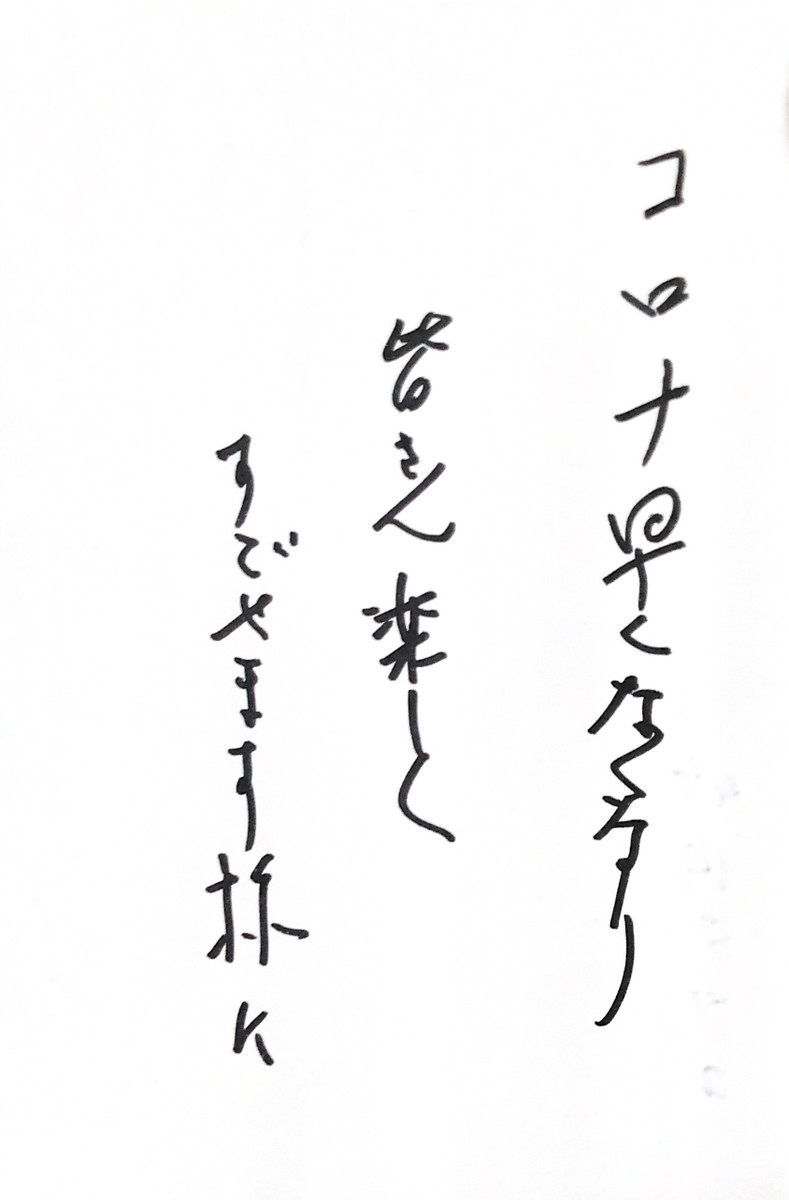 コロナ早くなくなり
皆さん楽しく
すごせます様に